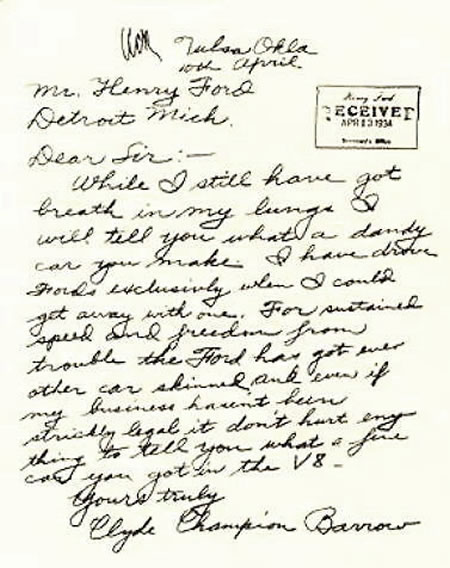 Tulsa Okla
10th April
Mr. Henry Ford
Detroit Mich.
Henry Ford
RECEIVED
APR 13 1934
Secretary's Office
Dear Sir:—
While I still have got
breath in my lungs I
will tell you what a dandy
car you make. I have drove
Fords exclusively when I could
get away with one. For sustained
speed and freedom from
trouble the Ford has got ever
other car skinned, and even if
my business hasen't been
strickly legal it don't hurt eny
thing to tell you what a fine
car you got in the V8 –
Yours truly
Clyde Champion Barrow